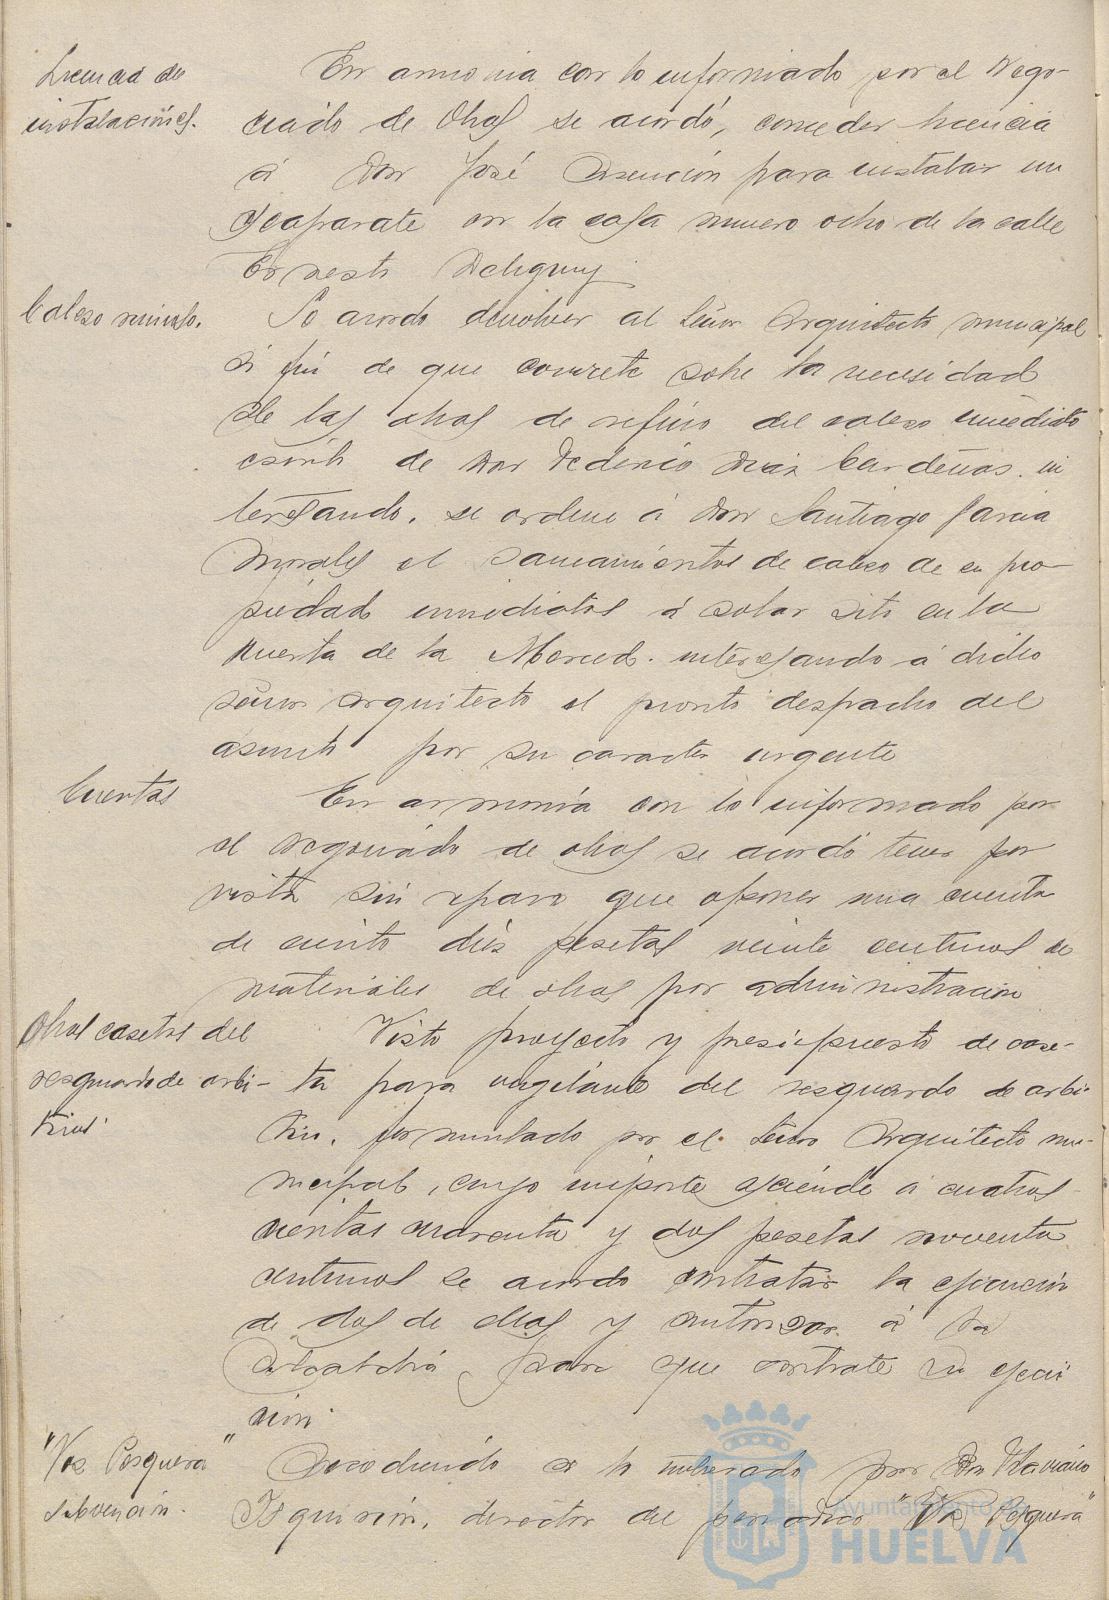 Licencia de
instalaciones.
En armonia con lo informado por el Nego-
ciado de Obras se acordó, conceder licencia
á Don José Asencion para instalar un
escaparate en la casa numero ocho de la calle
Ernesto Deligny
Cabezo ruinoso.
Se acordo devolver al Señor Arquitecto municipal
á fin de que concrete sobre la necesidad
de las obras de refino del cabezo inmediato
escrito de Don Federico Diaz Cardenas. in
teresando, se ordene á Don Santiago Garcia
Morales el saneamientos de cabezo de su pro-
piedad inmediatos á solar sito en la
Huerta de la Merced. interesando á dicho
señor arquitecto el pronto despacho del
asunto por su caracter urgente
Cuentas
En armonia con lo informado por
el Negociado de obras se acordó tener por
vista sin reparo que oponer una cuenta
de ciento diez pesetas veinte centimos de
materiales de obras por administracion
Obras casetas del
resguardo de arbi-
trios.
Visto proyecto y presupuesto de case-
ta para vigilante del resguardo de arbi-
trios, formulado por el Señor Arquitecto mu-
nicipal, cuyo importe asciende á cuatros-
cientas cuarenta y dos pesetas noventa
centimos se acordo contratar la ejecucion
de dos de ellas y autorizar á la
Alcaldia para que contrate su ejecu
cion.
"Voz Pesquera"
subvención.
Accediendo a lo interesado por Don Flaviano
Izquierdo, director del periodico "Voz Pesquera"
Ayuntamiento de
HUELVA